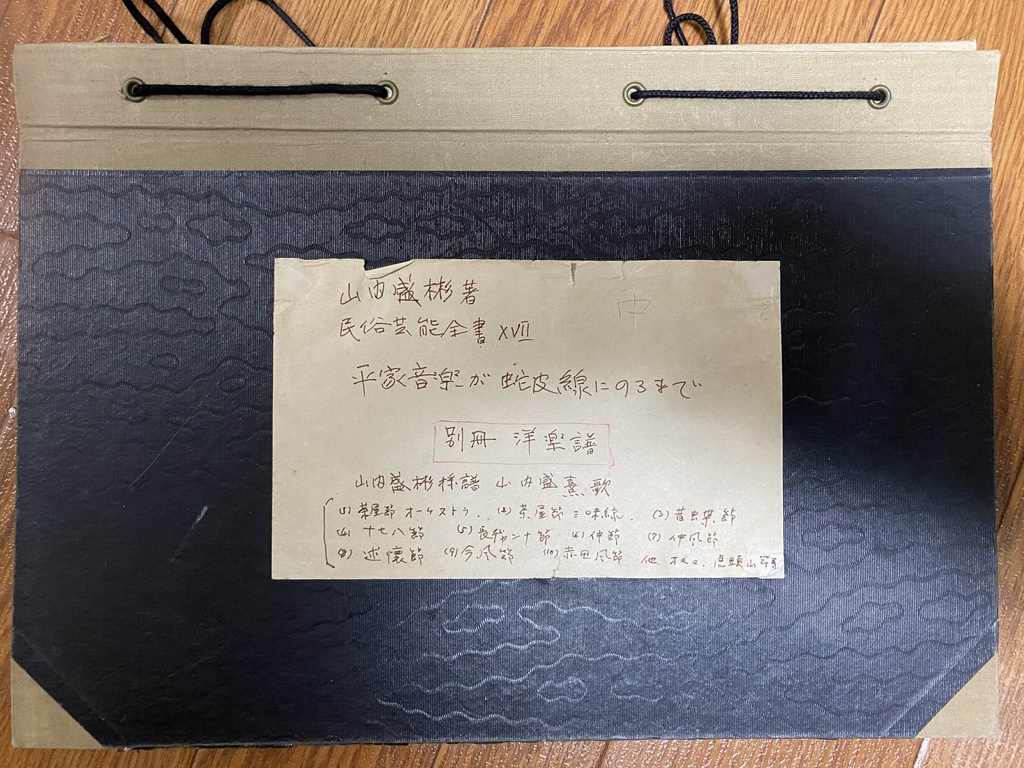 中
山内盛彬著
民俗芸能全書 XVII
平家音楽が蛇皮線にのるまで
別冊 洋楽譜
山内盛彬採譜 山内盛熹歌
(1) 茶屋節 オーケストラ. (2) 茶屋節 三味線. (3) 昔蝶節
(4) 十七八節 (5) 長物二十節 (6) 仲節 (7) 仲風節
(8) 述懐節 (9) 今風節 (10) 赤田風節 他. オモロ. 虎頭山節